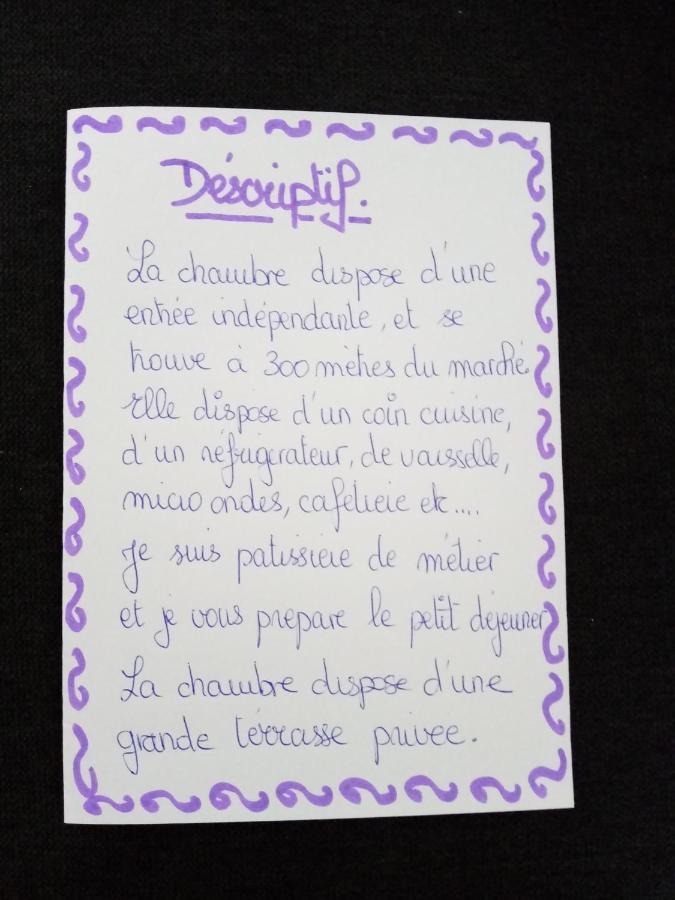 Déscriptif.
La chambre dispose d'une
entrée indépendante, et se
trouve à 300 mètres du marché.
Elle dispose d'un coin cuisine,
d'un réfrigérateur, de vaisselle,
micro ondes, cafétieie etc....
Je suis patissieie de métier
et je vous prepare le petit déjeuner
La chambre dispose d'une
grande térrasse privee.